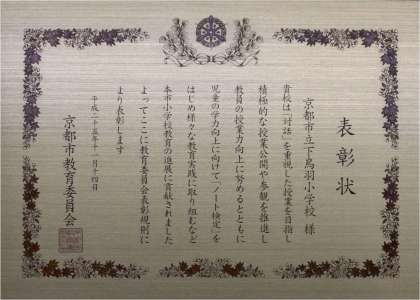 表彰状
京都市立下鳥羽小学校 様
貴校は「対話」を重視した授業を目指し
積極的な授業公開や参観を推進し
教員の授業力向上に努めるとともに
児童の学力向上に向けて「ノート検定」を
はじめ様々な教育実践に取り組むなど
本市小学校教育の進展に貢献されました
よってここに教育委員会表彰規則に
より表彰します
平成二十五年十一月十四日
京都市教育委員会